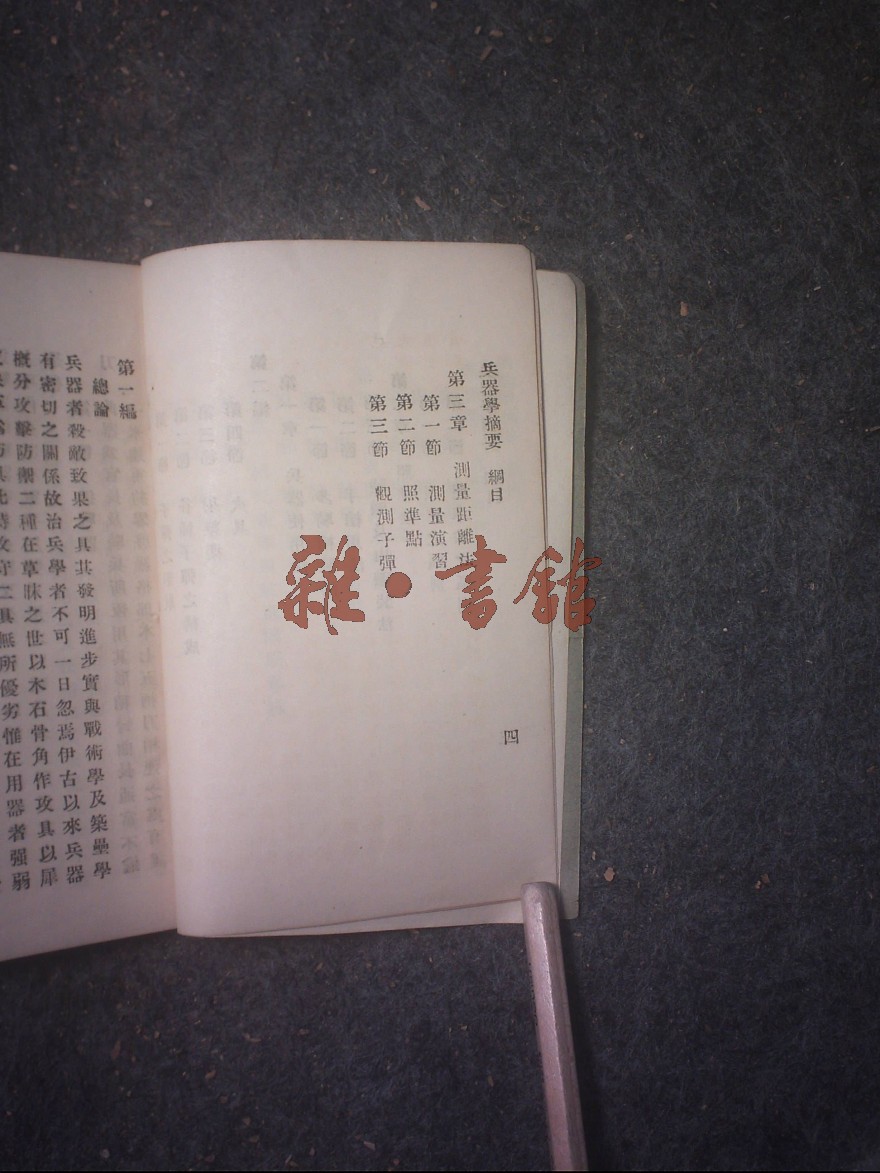 兵器學摘要 綱目
第三章 測量距離法
第一節 測量演習
第二節 照準點
第三節 觀測子彈
四
雜·書館
第一編
總論
兵器者殺敵致果之具其發明進步實與戰術學及築壘學
有密切之關係故治兵學者不可一日忽焉伊古以來兵器
概分攻擊防禦二種在草昧之世以木石骨角作攻具以犀
具此時攻守二具無所優劣惟在用器者强弱